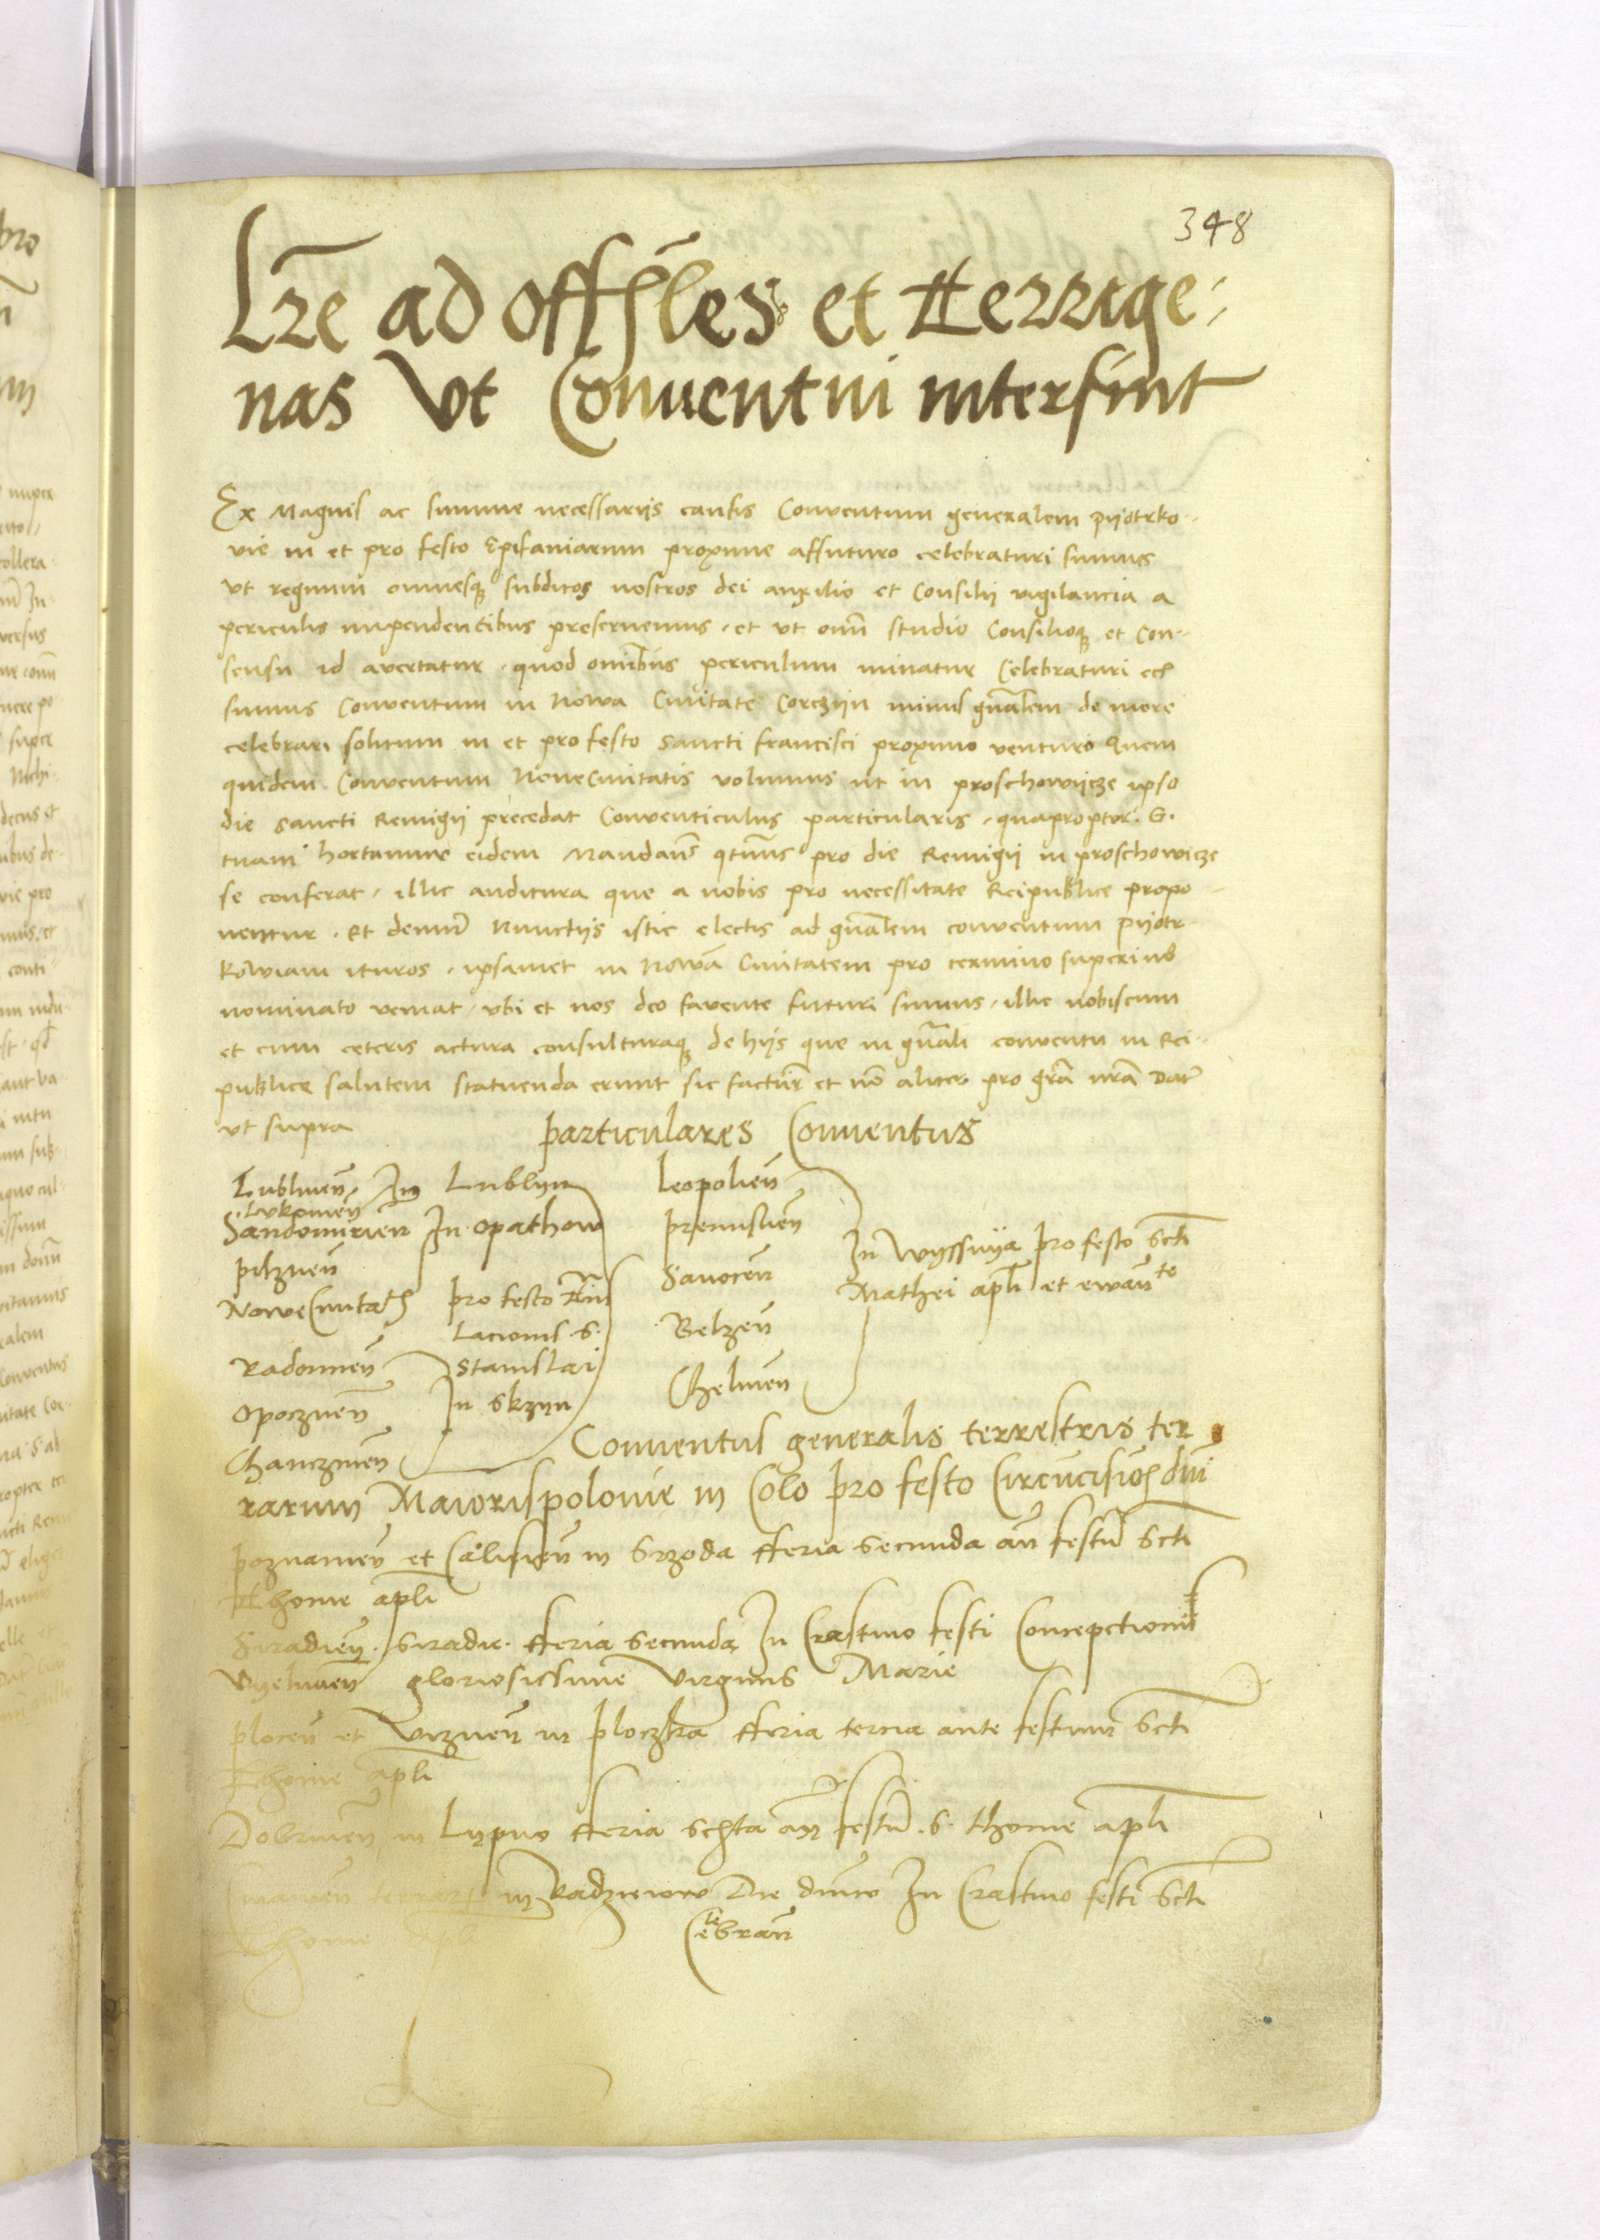 348
Lre ad offles et Terrige-
nas Vt Conventui intersint
Ex Magnis ac summe necessariis causis Conventum generalem pijotrko-
vie in et pro festo Epifaniarum proxime affuturo celebraturi sumus
Vt regnum omnesque subditos nostros dei auxilio et Consilij vigilancia a
periculis impendentibus preservemus, et ut omni studio Consilioque et Con-
sensu id avertatur, quod omnibus periculum minatur Celebraturi eciam
sumus Conventum in Nowa Civitate Corczijn minus generalem de more
celebrari solitum in et pro festo sancti francisci proximo venturo Quem
quidem Conventum Nove Civitatis volumus ut in proschowijcze ipso
die sancti Remigij precedat Conventiculus particularis, quapropter G.
tuam hortamur eidem Mandantes quatenus pro die Remigij in proschowicze
se conferat, illic auditura que a nobis pro necessitate Reipublice propo-
nentur. Et demum Nunctijs istic electis ad generalem conventum pijotr-
kowiam ituros, ipsamet in Nowam Civitatem pro termino superius
nominato veniat, ubi et nos deo favente futuri sumus, illic nobiscum
et cum ceteris actura consulturaque de hijs que in generali conventu in Rei-
publice salutem statuenda erunt sic factura et non aliter pro gratia nostra Datum
ut supra
particulares Conventus
Lublinen In Lublyn
Lukovien
Sandomirien In opathow
pilznen
Nowe Civitatis pro festo Trans
lacionis S.
Radomien Stanislai
Opocznen In Skzyn
Chanczinen
Leopolien
premislien
Sanocen
Belzen
Chelmen
In Wyssnya pro festo Scti
Mathei apli et ewante
Conventus generalis terrestris ter
rarum Maioris polonie in Colo pro festo Circucisiois dni
poznanien et Calisien in Srzoda Feria secunda an festu Scti
Thome apli
Siradien. Siradie. Feria secunda In Crastino festi Concepctionis
Vyelunen gloriosissime Virginis Marie
plocen et Viznen in ploczka Feria tercia ante festum Scti
Thome apli
Dobrinen in Lypno Feria sexta an festu S. thome apli
in Radzieiow Die dnico In Crastino festi Scti
Thome
Celebran